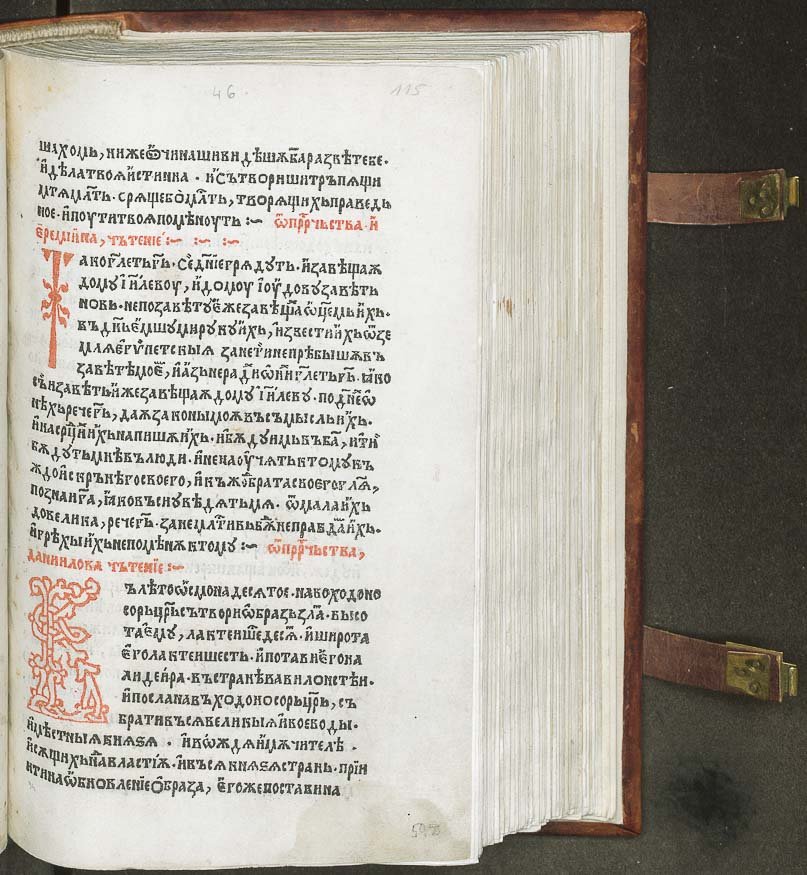 46
115
шахомь, ниже ѿчи наши видѣшѧ ба҃ развѣ тебе·
и҆ дѣла твоѧ и҆стинна · и҆ сътвориши трьпѧщи
мтѧ мл҃ть · срѧщебо мл҃ть, творѧщихь праведь
ное · и҆ поути твоѧ помѣноуть :~ ѿ прⷪ҇рчьства · и҆
е҆реміина, чьтеніе :~ :~ :~
Тако гл҃еть гь҃ · се дн҃іе грѧдуть · и҆ завѣщаѫ
домꙋ і҆и҃левоу, и҆ домоу і҆оу҆довꙋ завѣть
новь · не по завѣтꙋ е҆же завѣщах ѿц҃емь и҆хь ·
въ дн҃ь е҆мшꙋ ми рꙋкꙋ и҆хь, и҆звести и҆хь ѿ зе
млѧ е҆гѵпетскыѧ зане ти не прѣбышѧ въ
завѣтѣ моем, и҆ азь не радих ѡ ни гл҃еть гь҃ · ꙗко
съи завѣть и҆же завѣщаѫ домꙋ і҆и҃левꙋ · по дн҃е ѡ
нѣхь рече гь҃, даѫ законы моѫ въ съмысль и҆хь ·
и҆ на срⷣци и҆хь напишѫ и҆хь · и҆ бѫдꙋ и҆мь въ ба҃, и҆ ти
бѫдꙋть мнѣ въ люди · и҆ не наоу҆чѧть къ томꙋ къ
ждо и҆скрънѣго своего, и҆ къжⷣо брата своего гл҃ѧ,
познаи га҃, ꙗко въси ꙋвѣдѧть мѧ · ѿ мала и҆хь
до велика, рече гь҃ · зане млⷭ҇тивь бѫ неправдаⷨ и҆хь ·
и҆ грѣхы и҆хь не помѣнѫ к томꙋ :~ ѿ прⷪ҇рчьства,
даниилова чьтеніе :~
Въ лѣто ѡ҆смонадесѧтое · навоходоно
сорь црⷭ҇ь сътвори ѡ҆бразь зла · высо
та е҆мꙋ, лакти шесⷣесѧ · и҆ широта
е҆го лактеи шесть · и҆ постави е҆го на
ли деи҆ра · въ странѣ вавилонстѣи ·
и҆ посла навъходоносорь цр҃ь, съ
брати въсѧ великыѧ и҆ воеводы ·
и҆ мѣстныѧ кнѧѕѧ · и҆ вѡждѧ и҆ мѫчителѣ ·
и҆ сѫщихь на властіѫ · и҆ въсѧ кнѧѕѧ странь · пріи
ти на ѡ҆бновленіе ѻ҆браза, е҆гоже постави на